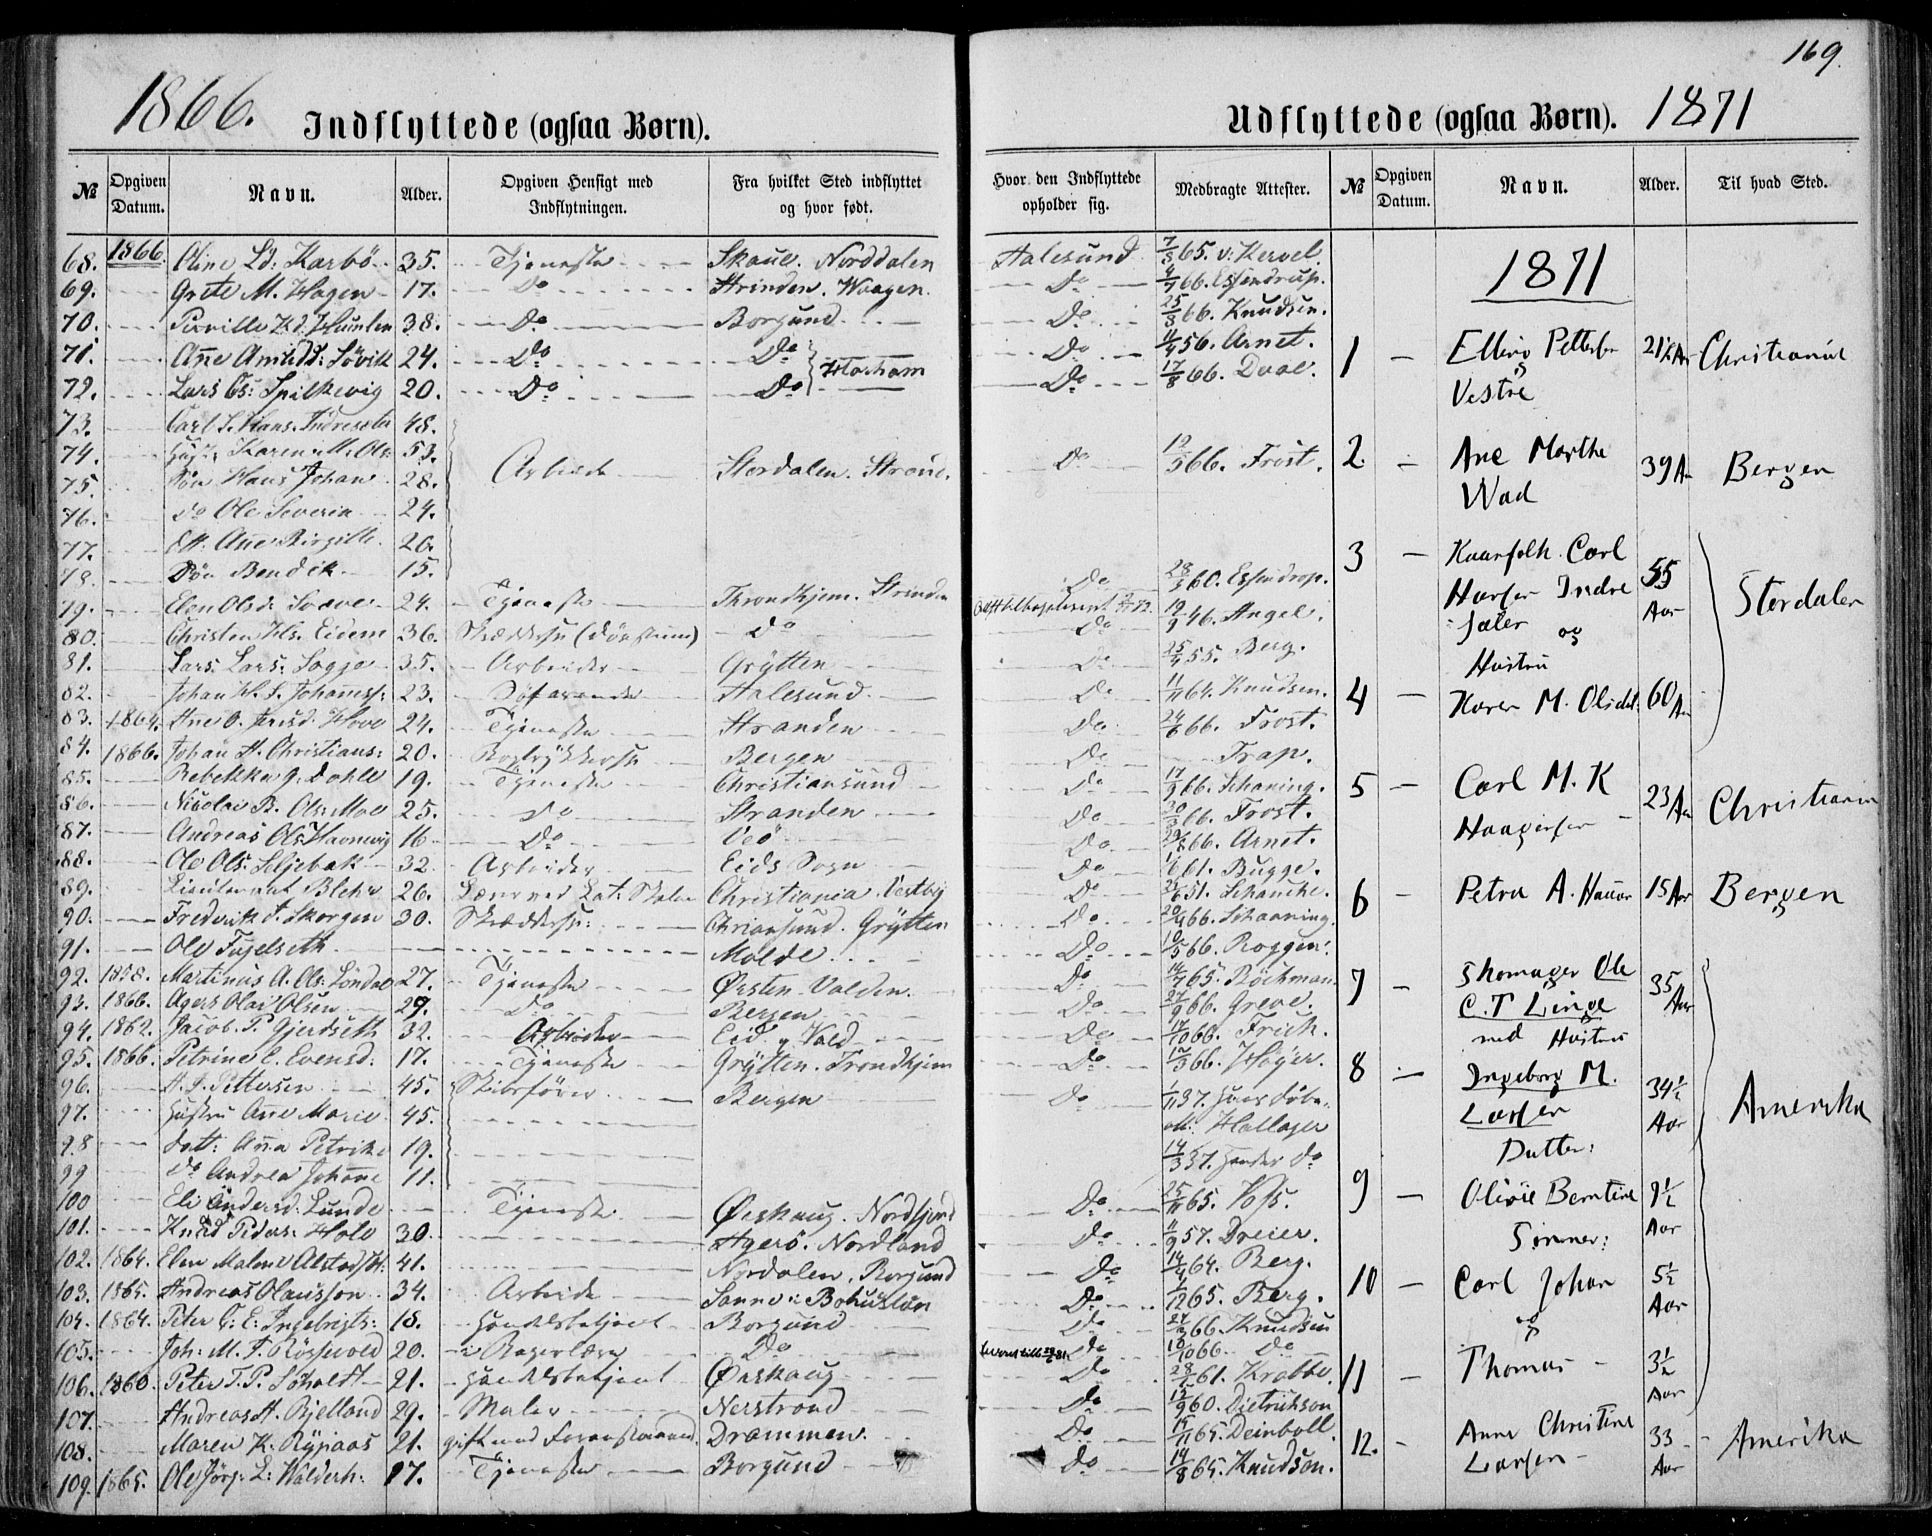 169.
1866.
Indflyttede (ogsaa Børn).
№ Opgiven Datum. Navn. Alder. Opgiven Hensigt med Indflytningen. Fra hvilket Sted indflyttet og hvor født. Hvor den Indflyttede opholder sig. Medbragte Attester.
68. 1866. Oline Ld: Karbö 35. Tjeneste Skaue. Norddalen Aalesund 7/3 65. v: Kervel.
69. Grete M. Hagen 17. Do Strinden. Waagen. Do 4/7 66. Essendrup.
70. Pernille Kd. Humlen 38. Do Borgund. Do 25/8 66. Knudsen.
71. Ane Amtsd: Sövik 24. Do Do Harham Do 4/4 56. Arnet.
72. Lars Cs: Spilkevig 20. Do Do Do 17/8 66. Daae.
73. Carl 48.
74. Karen M. Ols: 53.
75. Sön Hans Johan 28. Arbeide Stordalen. Do 12/5 66. Frost.
76. do Ole Severin 24.
77. Ane Birgitte 20.
78. Sön Bendik 15.
79. Elen Olsd: 24. Tjeneste Throndhjem. Strinden Do 28/5 60. Essendrop.
80. Christen Hs: Eidem 36. Do Do 19/9 46. Angel.
81. Lars Lars: Sogge 35. Arbeider Grytten Do 25/4 55. Berg.
82. Johan H. J. Johanness: 23. Söfarende Aalesund Do 11/11 64. Knudsen.
83. 1864. Ane O. Hove 24. Tjeneste Stranden Do 24/6 66. Frost.
84. 1866. Johan H. Christians: 20. Bogtrykkersv. Bergen Do Trap.
85. Rebekka G. Dahle 19. Tjeneste Christiansund Do 17/9 66. Schaning.
86. Nicolai B. Ols: Moe 25. Do Stranden Do 30/3 66. Frost.
87. Andreas Ols: Havnevig 16 Do Veö Do 29/8 66. Arnet.
88. Ole Ols: Seljebak 32. Arbeider Eids Sogn Do 1/6 61. Bugge.
89. Lieutenant Blehr 26. Lærer ved Lat: Skolen Christiania. Vestby Do 51. Schanche.
90. Frederik J. Skorgen 30. Skræddersv: Christiansund. Grytten Do 20/4 66. Schaaning.
91. Ole Fugelseth Molde Do 10/5 66. Roggen.
92. 1858. Martinus A. Ols: Löndal 27. Tjeneste Örsten Valden. Do 14/4 65. Röchman.
93. 1866. Agers Olai Olsen 29. Do Bergen Do 27/9 66. Greve.
94. 1862. Jacob. P. Gjerdseth 32. Arbeider Eid. Vold Do 17/10 66. Frich.
95. 1866. Petrine C. Evensd: 17. Tjeneste Grytten. Trondhjem Do 12/3 66. Höyer.
96. A. J. Pettersen 45. Skibsförer Bergen Do 1/11 37. Hans döbe
97. Hustru Ane Marie 45. att. Hallager
98 datt: Anna Petrike 19. 14/3 37. Hendes do
99 do Andrea Johane 11.
100 Eli Andersd. Lunde Tjeneste Örskoug. Nordfjord Do 25/11 65. Voss.
101. Knud Peders: Hole 30. Agerö. Nordland Do 11/9 57. Dreier.
102. 1864. Elen Malene Alstad 41. Nordalen. Borgund Do 14/4 64. Berg.
103. 1865. Andreas Olausson 34. Arbeide Sanne i Bohuslän Do 1/12 65. Berg.
104. 1864. Peter C. E. Ingebrigts: 18. Handelsbetjent Borgund Do 24/9 66. Knudsen
105. Joh: M. J. Rösevold 20. i Bagerlære Do Do 10/10 66. Do
106. 1860. Peter T. P. Soholdt 21. Handelsbetjent Örskoug Do 28/7 61. Krabbe.
107. Andreas A. Bjelland 29. Maler Nerstrand Do 15/9 60. Dietrichson
108. Maren K. Rypaas 21. gift med Drammen. Do 15/11 65. Deinboll.
109. 1865. Ole Jörg: L: Walderh: 17. Tjeneste Borgund Do 14/8 65. Knudson.
Udflyttede (ogsaa Børn). 1871
№ Opgiven Datum. Navn. Alder. Til hvad Sted.
1871
1 Elling Pettersen 21½ Aar Christiania
Vestre
2. Ane Marthe 39 Aar Bergen
Wad
3 Kaarfolk Carl 55
Hansen Indre Aar Stordalen
Sæter og
Hustru
4 Karen M. Olsdat. 60 Aar
5 Carl M. K 23 Aar Christiania
Haagensen
6 Petra A. Hauar 15 Aar Bergen
7 Skomager Ole 35 Aar
C. T Linge
med Hustru
8 Ingeborg M. 34½ Amerika
Larsen Aar
Dutter:
9 Oliøie Berntine 9½
Sönner: Aar
10 Carl Johan 5½
og Aar
11 Thomas 3½
Aar
12. Anne Christine 33 Amerika
Larsen Aar